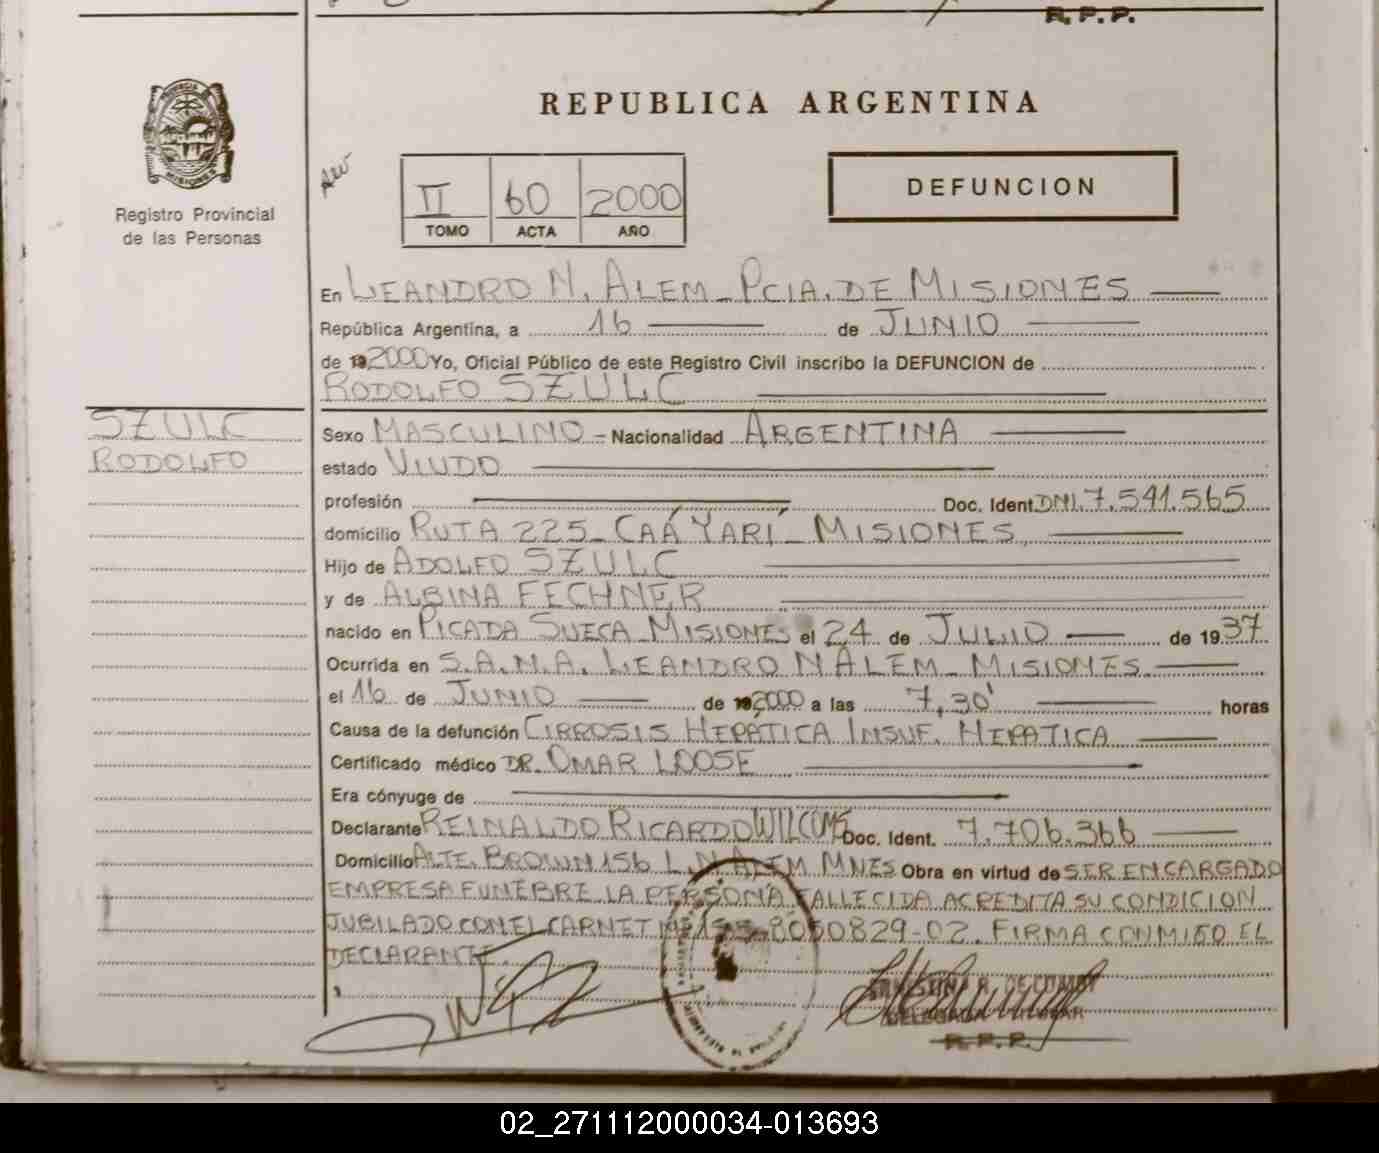 R.P.P.
PROVINCIA DE
MISIONES
Registro Provincial
de las Personas
REPUBLICA ARGENTINA
II 60 2000
TOMO ACTA AÑO
DEFUNCION
En LEANDRO N. ALEM - PCIA. DE MISIONES
República Argentina, a 16 de JUNIO
de 2000 Yo, Oficial Público de este Registro Civil inscribo la DEFUNCION de
RODOLFO SZULC
SZULC
RODOLFO
Sexo MASCULINO - Nacionalidad ARGENTINA
estado VIUDO
profesión Doc. Ident DNI. 7.541.565
domicilio RUTA 225 - CAÁ YARÍ - MISIONES
Hijo de ADOLFO SZULC
y de ALBINA FECHNER
nacido en PICADA SUECA - MISIONES el 24 de JULIO de 1937
Ocurrida en S.A.N.A. LEANDRO N ALEM - MISIONES
el 16 de JUNIO de 2000 a las 7,30' horas
Causa de la defunción CIRROSIS HEPÁTICA INSUF. HEPATICA
Certificado médico DR. OMAR LOOSE
Era cónyuge de
Declarante REINALDO RICARDO Doc. Ident. 7.706.366
Domicilio ALTE. BROWN 156 L.N. ALEM MNES Obra en virtud de SER ENCARGADO
EMPRESA FUNEBRE. LA PERSONA FALLECIDA ACREDITA SU CONDICION
JUBILADO CON EL CARNET 8050829-02. FIRMA CONMIGO EL
DECLARANTE.
R.P.P.
02_271112000034-013693